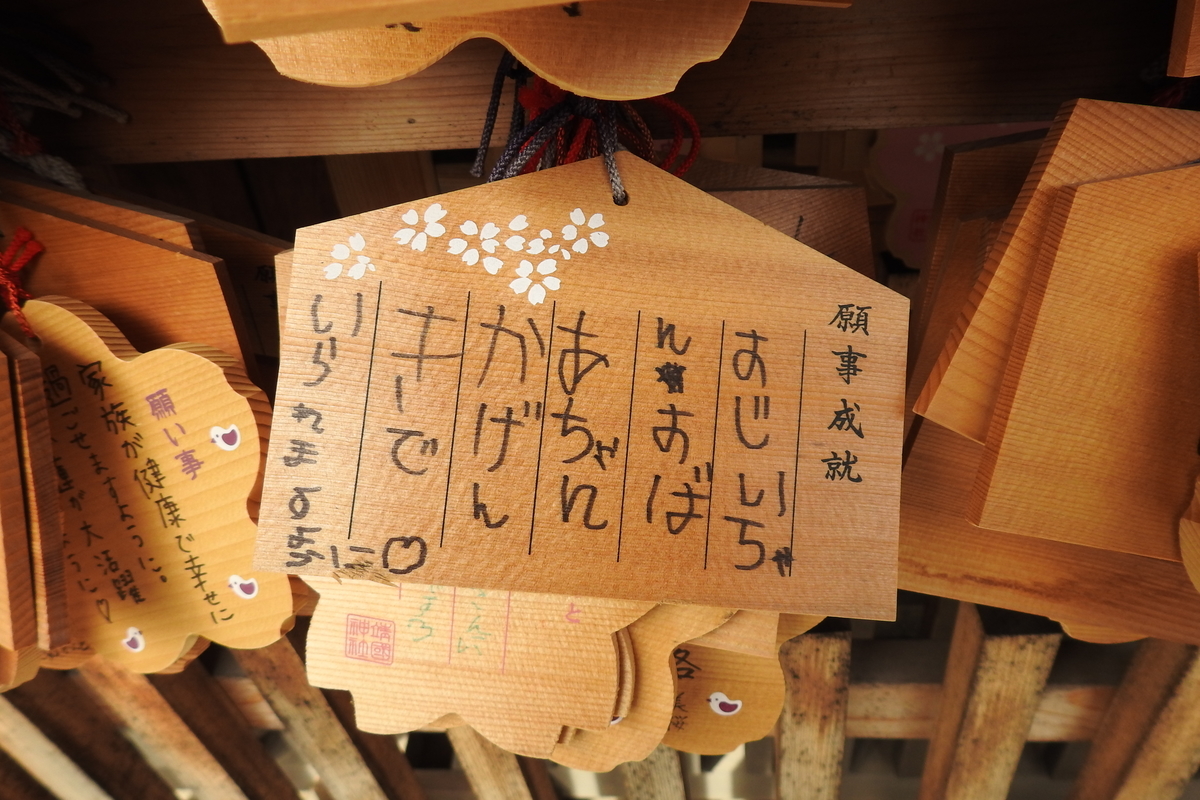 願事成就
おじいちゃ
んおば
あちゃん
かげん
キーで♡
いられますように
願い事
家族が健康で幸せに
過ごせますように。
が大活躍
ように♡
靖國
神社
と